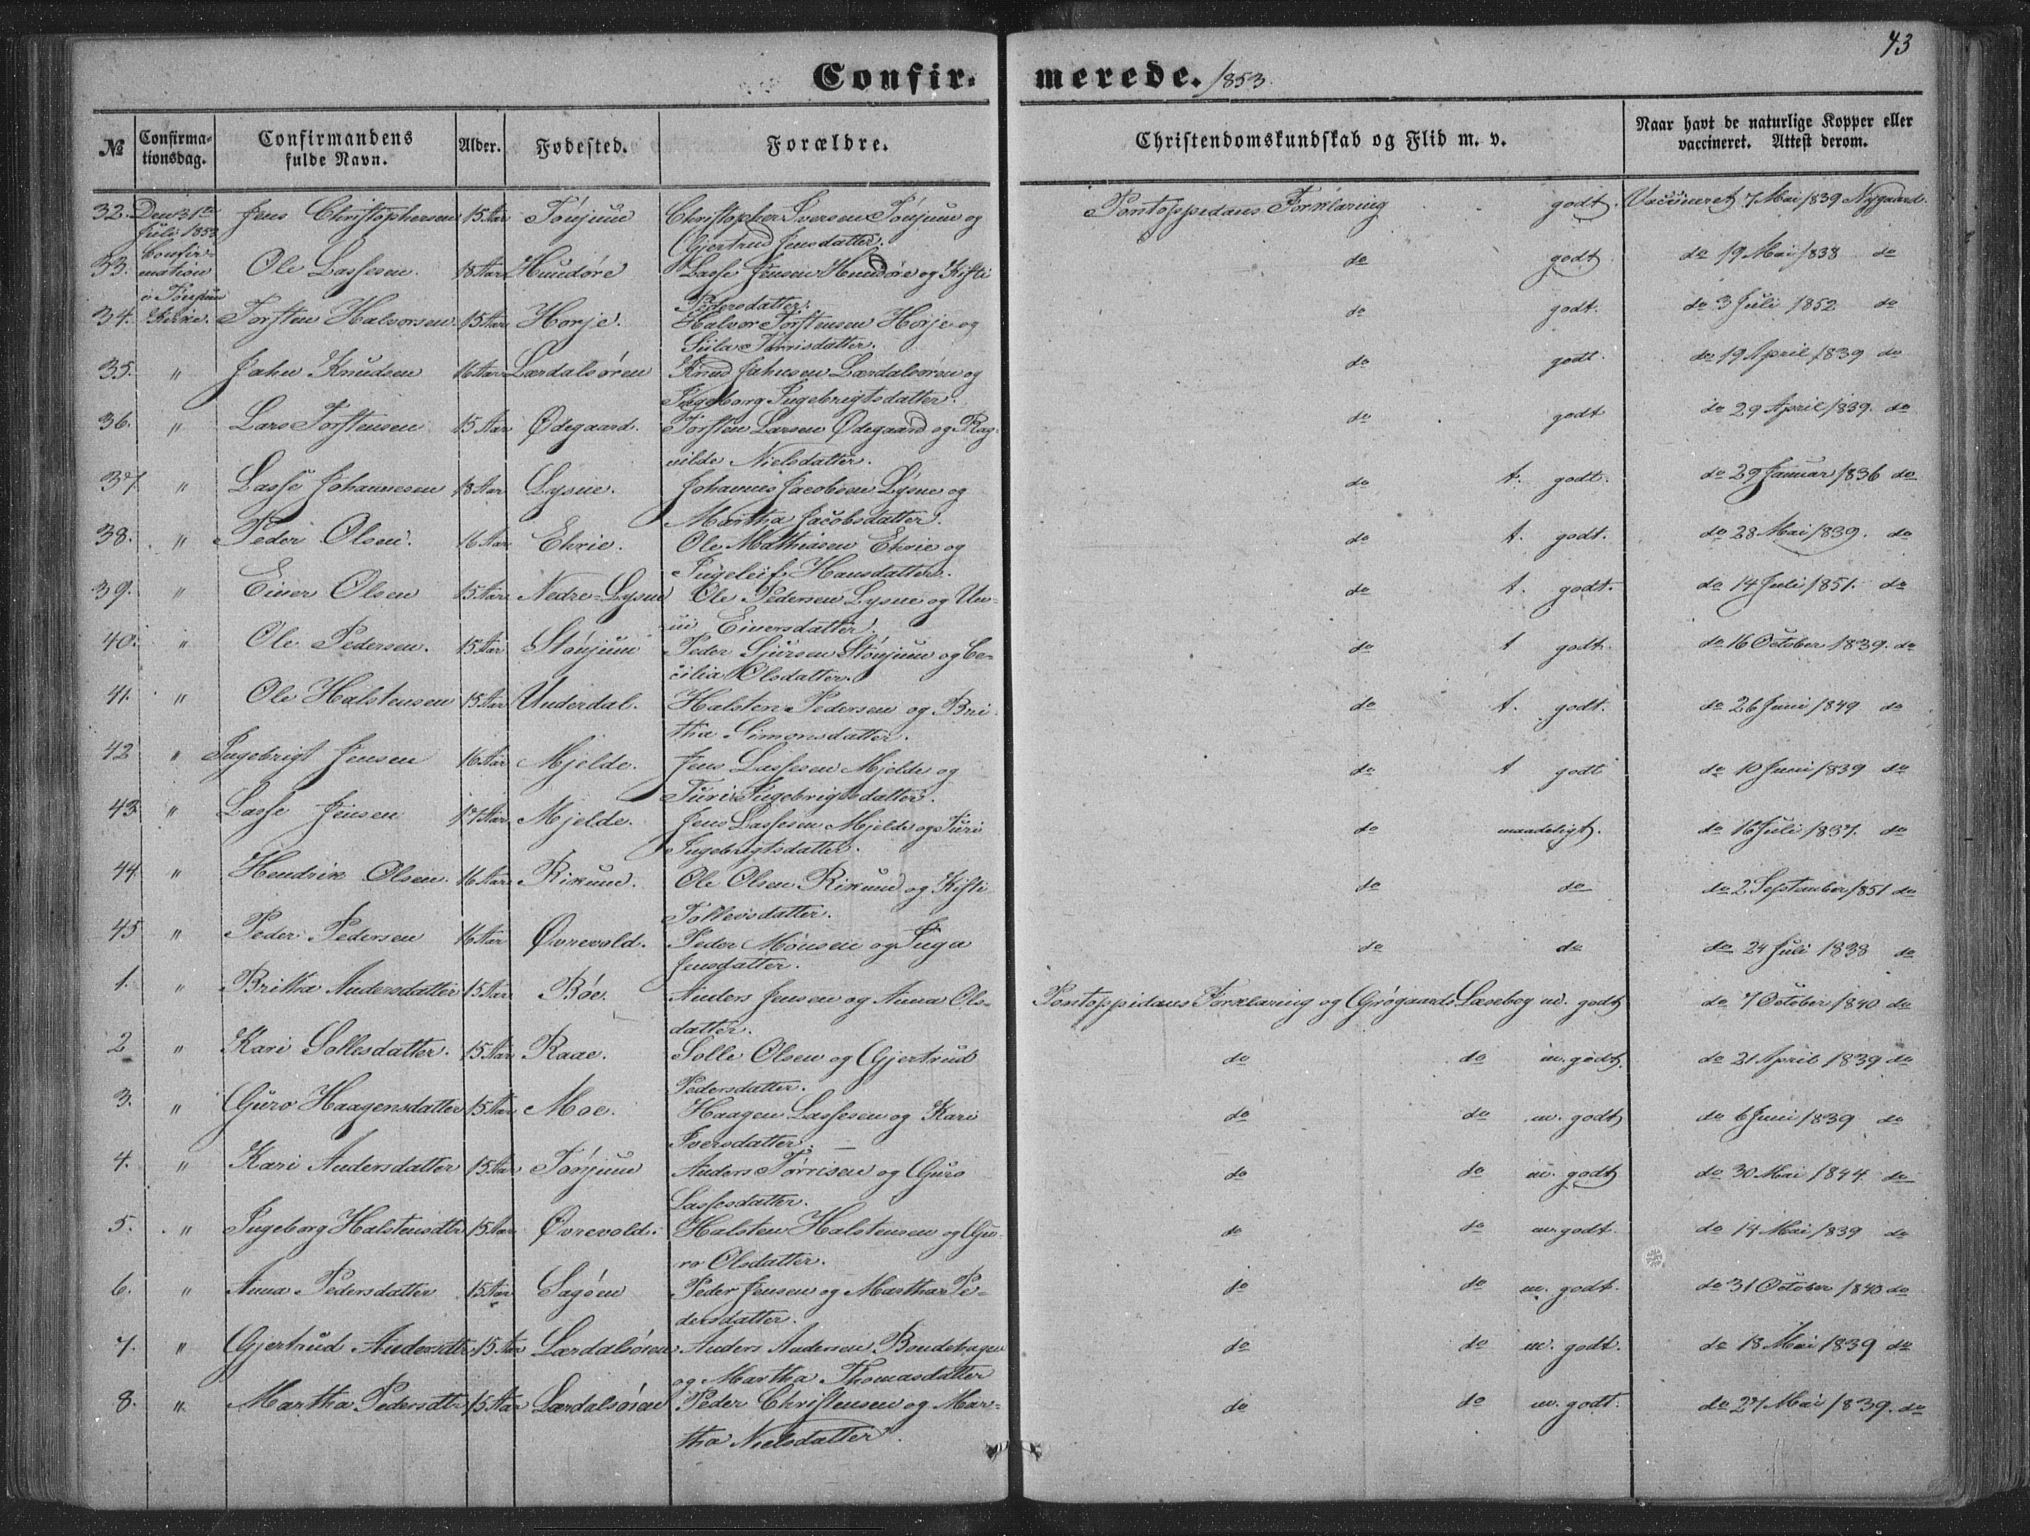 43
Confir- merede. 1853.
№ Confirma-tionsdag. Confirmandens fulde Navn. Alder. Fødested. Forældre. Christendomskundskab og Flid m. v. Naar havt de naturlige Kopper eller vaccineret. Attest derom.
32. Den 31te Juli 1853 Jens Christophersen 15 Aar Tønjum Christopher Iversen Tønjum og Pontoppidans Forklaring godt. Vaccineret 7 Mai 1839 Nygaard.
Gjertrud Jensdatter.
33. Confirmation Ole Lassesen 18 Aar Hundøre Lasse Jensen Hundøre og Kisti do godt. do 19 Mai 1838 do
i Tønjum Pedersdatter.
34. Kirke. Torsten Halvorsen 15 Aar Horje. Halvor Torstensen Horje og do godt. do 3 Juli 1852 do
Siila Tørrisdatter.
35. " Jahn Knudsen 16 Aar Lærdalsøren Knud Jahnsen Lærdalsøren og do godt. do 19 April 1839 do
Ingeborg Ingebrigtsdatter.
36. " Lars Torstensen 15 Aar Ødegaard. Torsten Larsen Ødegaard og Rag- do godt do 29 April 1839. do
nilde Nielsdatter.
37 " Lasse Johannesen 18 Aar Lysne. Johannes Jacobsen Lysne og do t. godt. do 29 Januar 1836 do
Martha Jacobsdatter.
38. " Peder Olsen. 16 Aar Ehrie. Ole Mathiasen Ehrie og do t. godt. do 28 Mai 1839. do
Ingeleif Hansdatter.
39. " Einer Olsen 15 Aar Nedre-Lysne Ole Pedersen Lysne og Un- do t. godt. do 14 Juli 1851. do
ni Einersdatter.
40. " Ole Pedersen. 15 Aar Stønjum Peder Sjursen Stønjum og Ce- do t godt. do 16 October 1839. do
cilia Olsdatter.
41. " Ole Halstensen 15 Aar Underdal. Halsten Pedersen og Bri- do t. godt. do 26 Juni 1849 do
tha Simonsdatter.
42 " Ingebrigt Jensen 16 Aar Mjelde. Jens Lassesen Mjelde og do t godt do 10 Juni 1839 do
Turi Ingebrigtsdatter.
43 " Lasse Jensen 17 Aar. Mjelde. Jens Lassesen Mjelde og Turi do maadeligt. do 16 Juli 1837. do
Ingebrigtsdatter.
44 " Hendrik Olsen. 16 Aar Rikum. Ole Olsen Rikum og Kisti do do do 2 September 1851 do
Tollevsdatter.
45 " Peder Pedersen 16 Aar Øvrevold. Peder Mønsen og Inga do do do 24 Juli 1838 do
Jensdatter.
1. " Britha Andersdatter 15 Aar Bøe. Anders Jensen og Anna Ols- Pontoppidans Forklaring og Grøgaards Læsebog m. godt do 7 October 1840 do
datter.
2 " Kari Sollesdatter. 15 Aar Raae. Solle Olsen og Gjertrud do do m. godt. do 21 April 1839 do
Pedersdatter.
3. " Guro Haagensdatter 15 Aar Moe. Haagen Lassesen og Kari do do m. godt do 6 Juni 1839 do
Iversdatter. —
4. " Kari Andersdatter 15 Aar Tønjum Anders Tørrisen og Guro do do m. godt do 30 Mai 1844. do
Lassesdatter.
5. " Ingeborg Halstensdtr 15 Aar Øvrevold. Halsten Halstensen og Gu- do do m. godt. do 14 Mai 1839 do
ro Olsdatter.
6. " Anna Pedersdatter 15 Aar Sagøen Peder Jensen og Martha Pe- do do m. godt. do 31 October 1840 do
dersdatter.
7. " Gjertrud Andersdtr 15 Aar Lærdalsøren Anders Andersen Bondehagen do do m. godt. do 18 Mai 1839 do
og Martha Thomasdatter
8. " Martha Pedersdtr 15 Aar Lærdalsøren Peder Christensen og Mar- do do m. godt. do 27 Mai 1839. do
tha Nielsdatter.